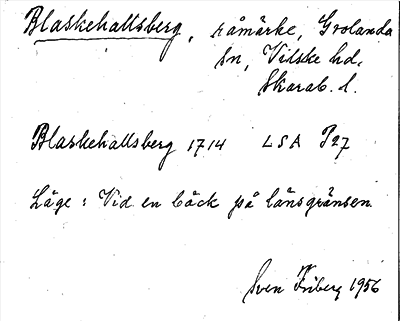 Blaskehallsberg, råmärke, Grolanda
sn, Vilske hd.
Skarab. l.
Blaskehallsberg 1714 LSA P27
Läge: Vid en bäck på länsgränsen
Sven Friberg 1956